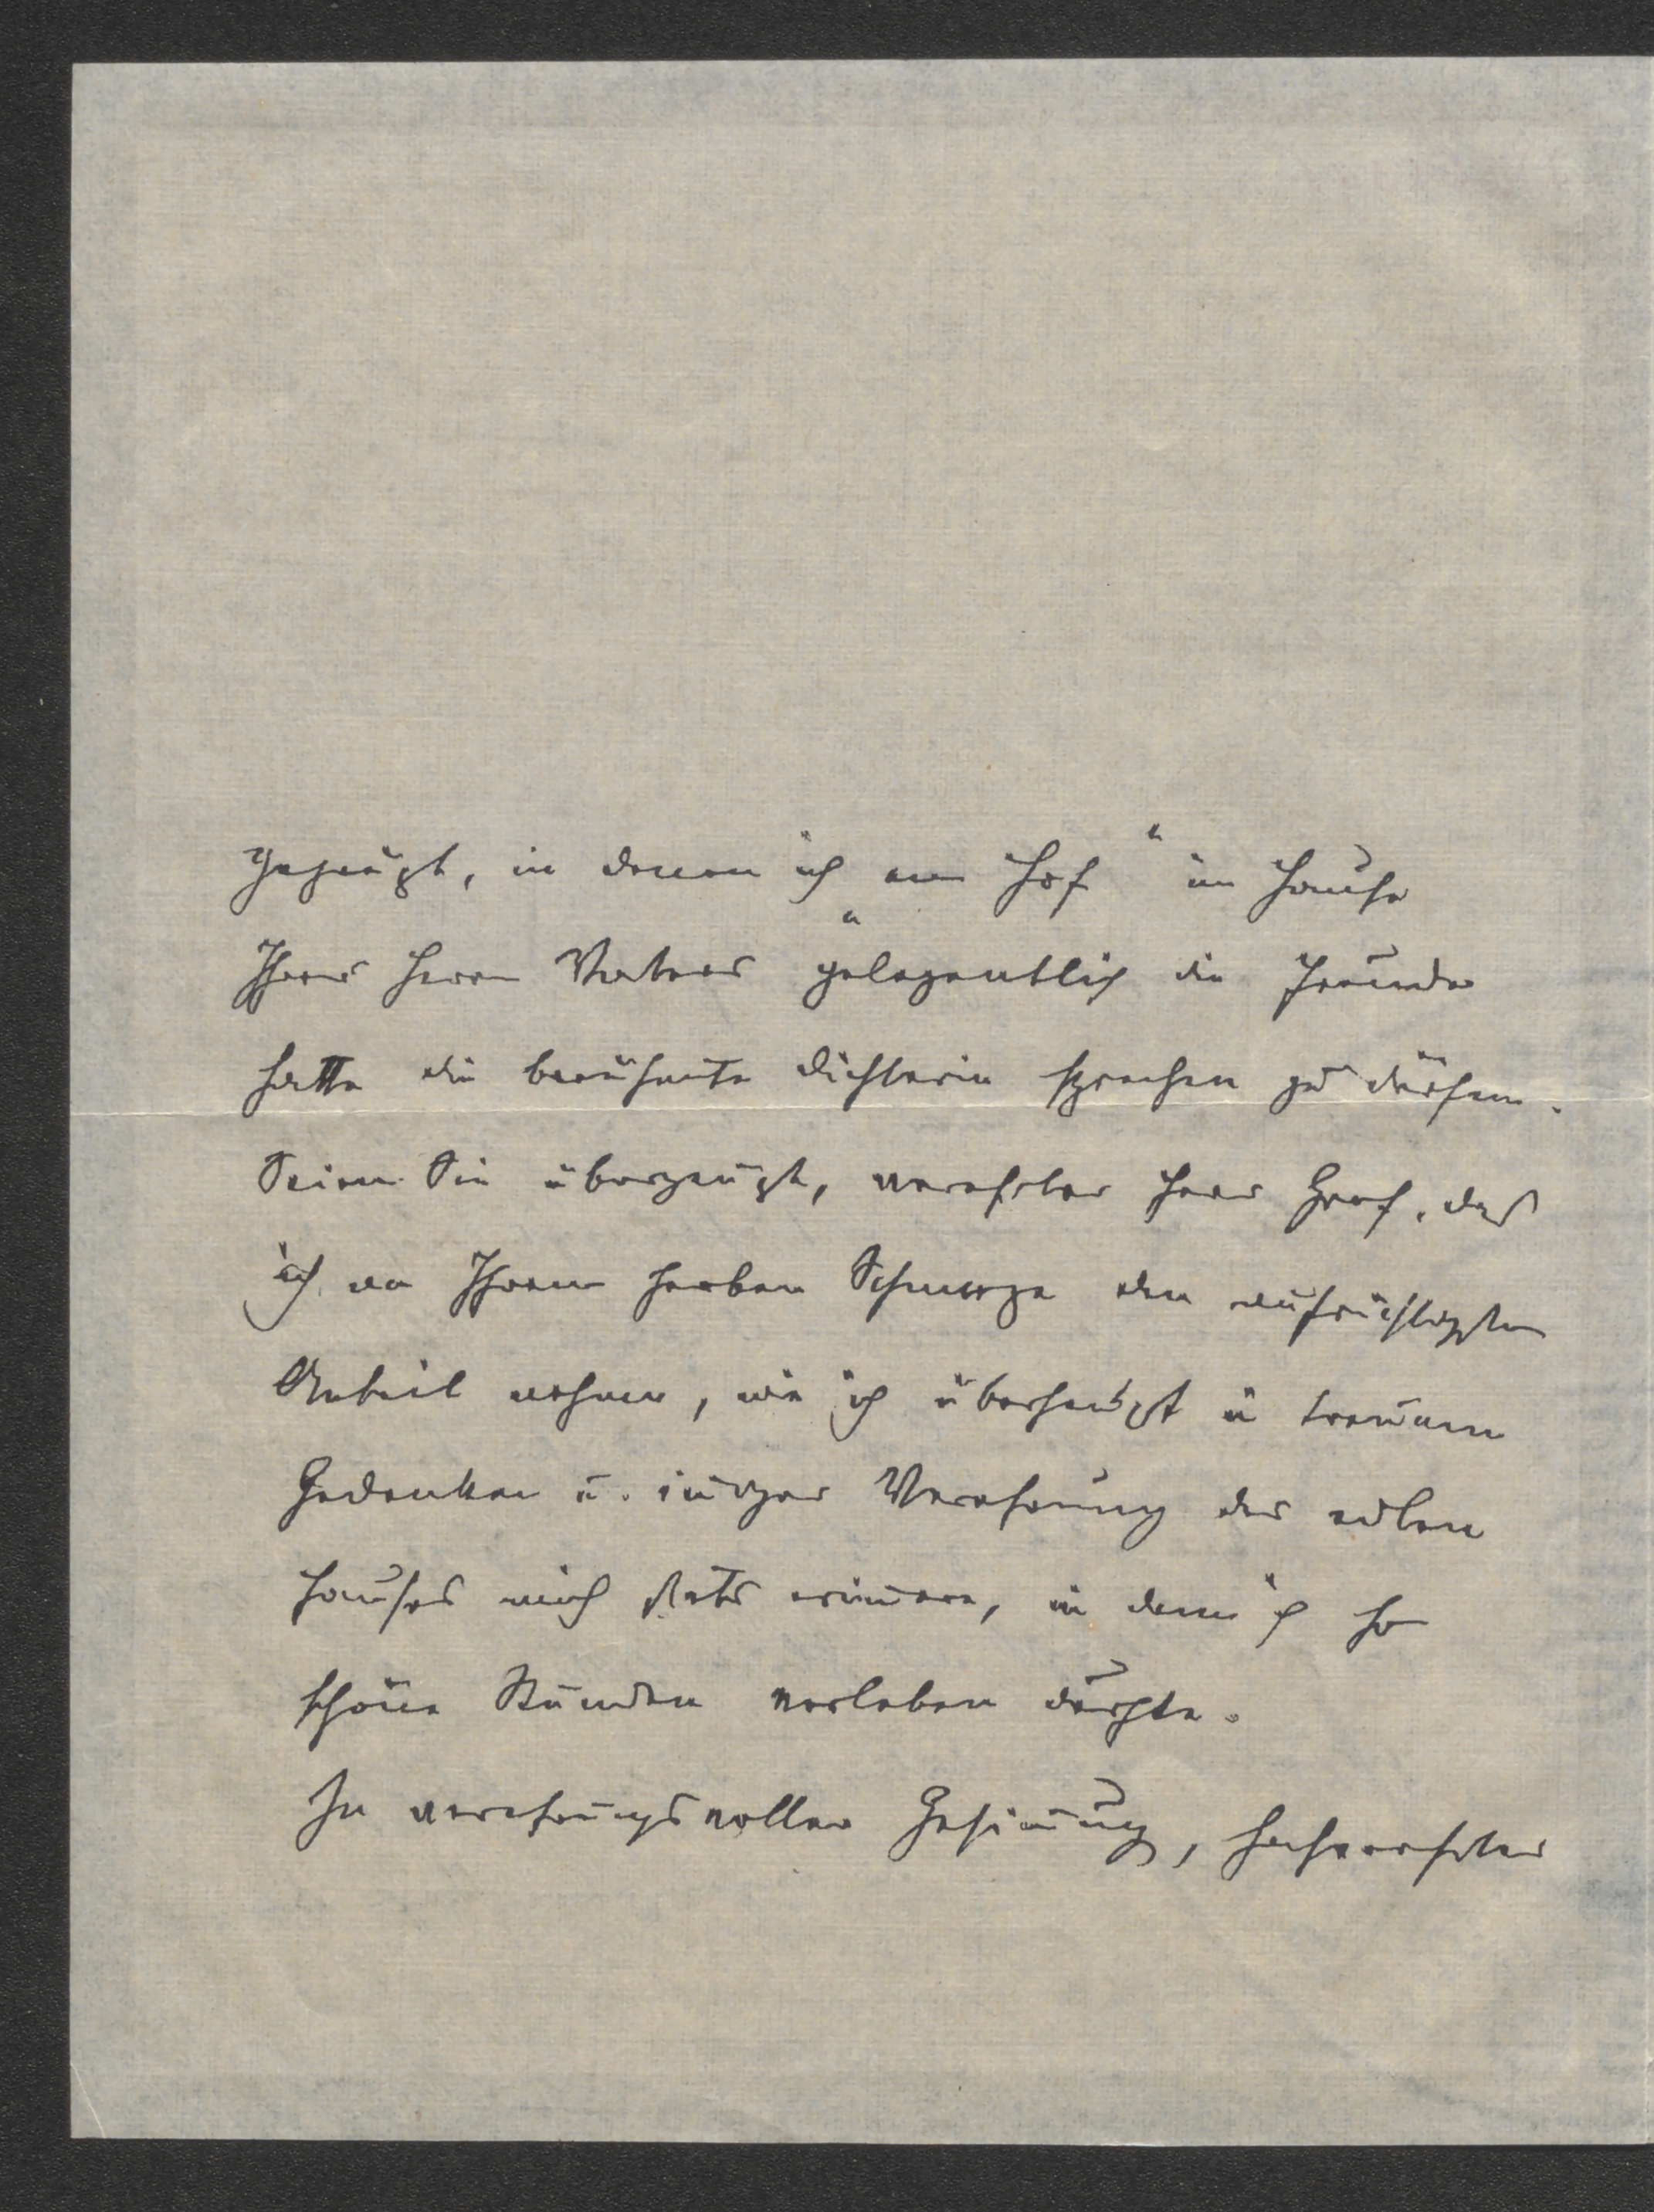 gezeugt, in denen ich am Hof " im Hause
Ihres Herrn Vaters " gelegentlich die Freude
hatte die berühmte Dichterin sprechen zu dürfen.
Seien Sie überzeugt, verehrter Herr Graf, daß
ich an Ihrem herben Schmerze den aufrichtigsten
Anteil nehme, wie ich überhaupt in treuem
Gedenken u. inniger Verehrung des edlen
Hauses mich stets erinnere, in dem ich so
schöne Stunden verleben durfte.
In verehrungsvoller Gesinnung, hochverehrter